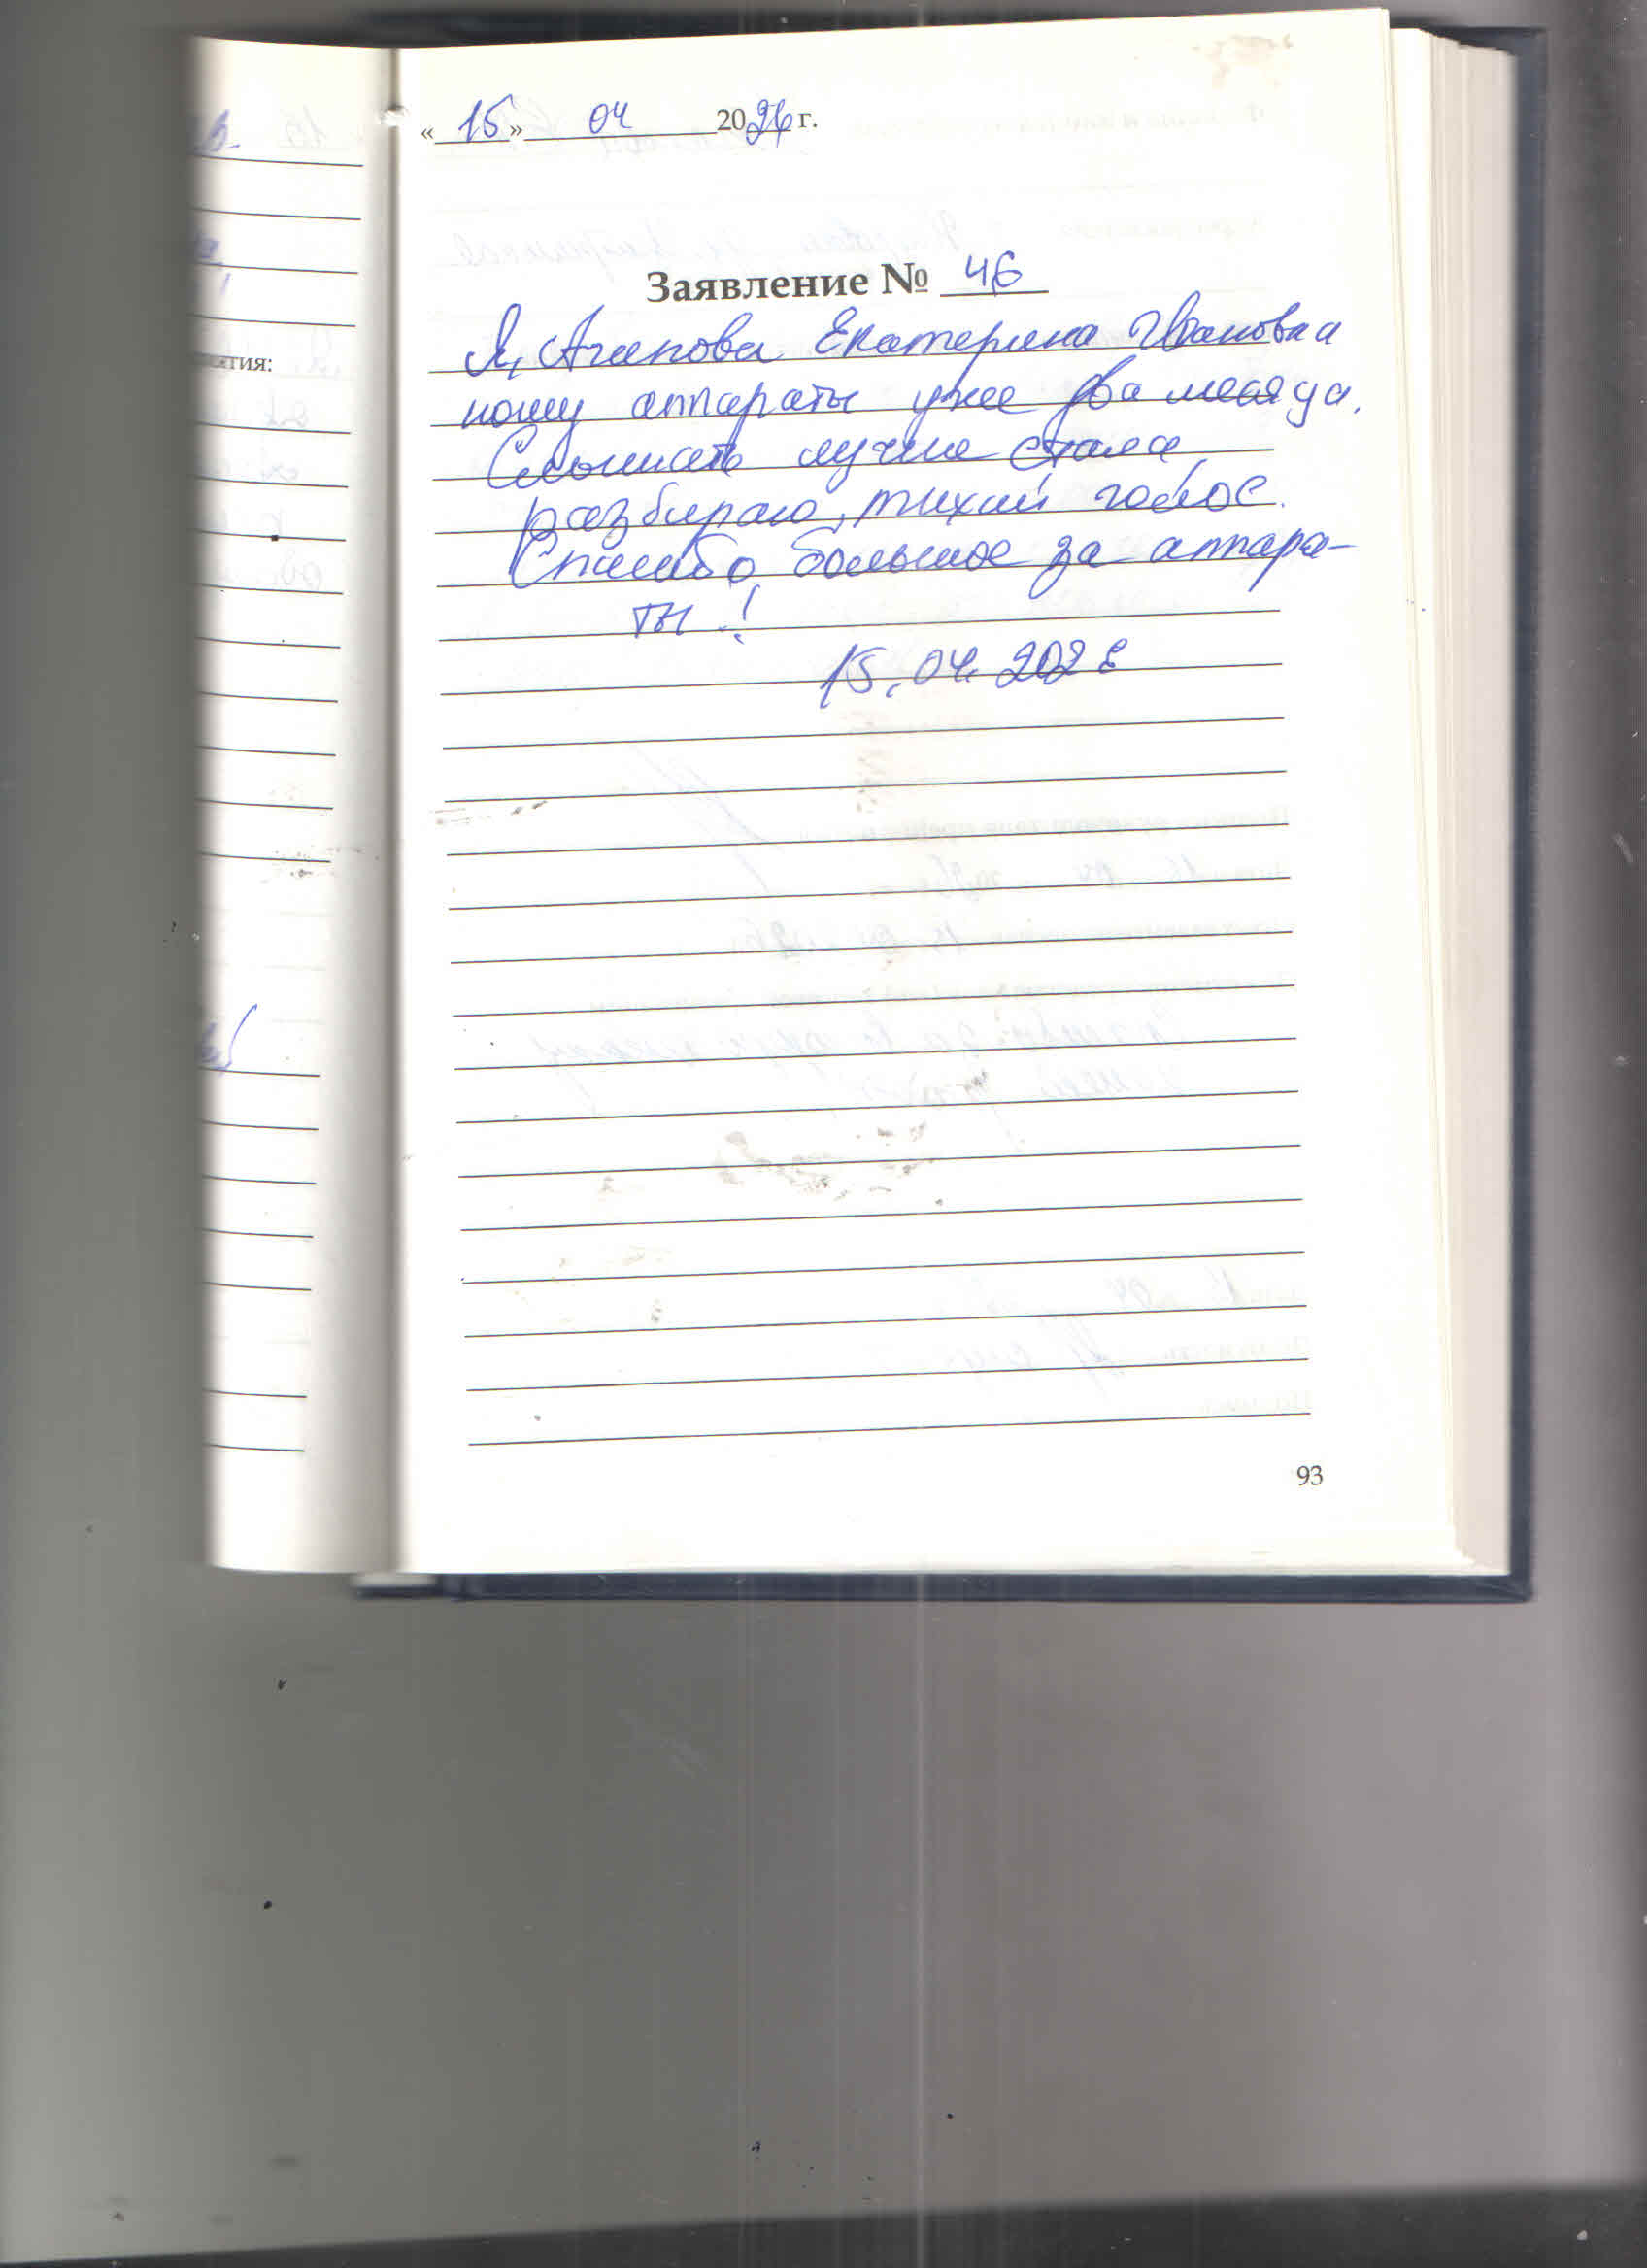 «15» 04 2026 г.
Заявление № 46
Я, Агапова Екатерина Ивановна
ношу аппараты уже два месяца.
Слышать лучше стала
разбираю, тихий голос.
Спасибо большое за аппара-
ты!
15.04.2026
93